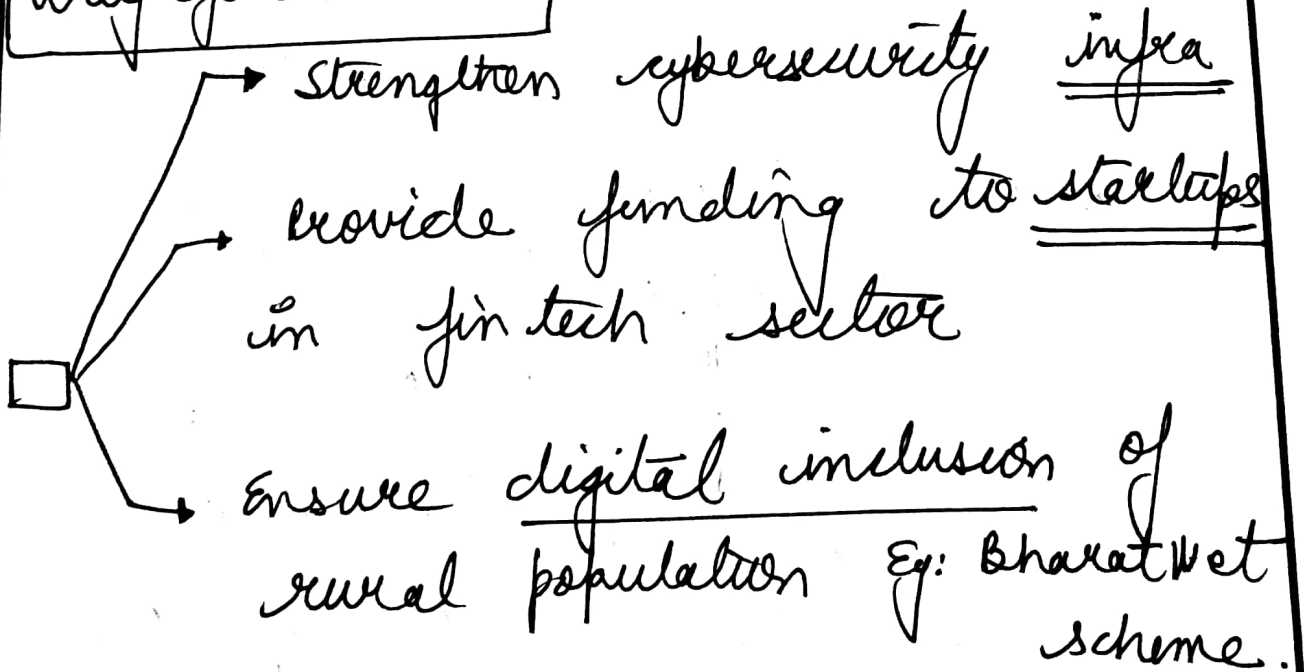 Strengthen cybersecurity infra
Provide funding to startups
in fintech sector
Ensure digital inclusion of
rural population Eg: BharatNet
scheme.